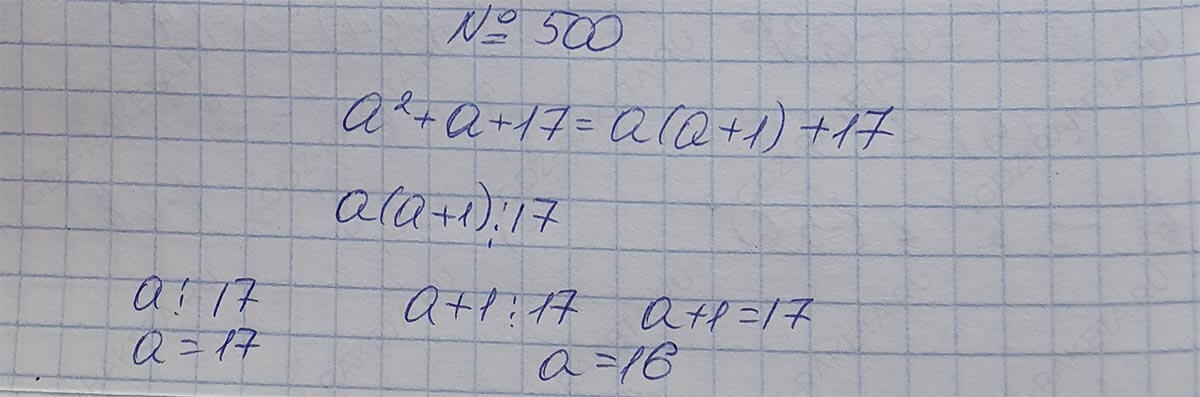 № 500
a² + a + 17 = a(a+1) + 17
a(a+1) ⋮ 17
a ⋮ 17 a+1 ⋮ 17 a+1 = 17
a = 17 a = 16